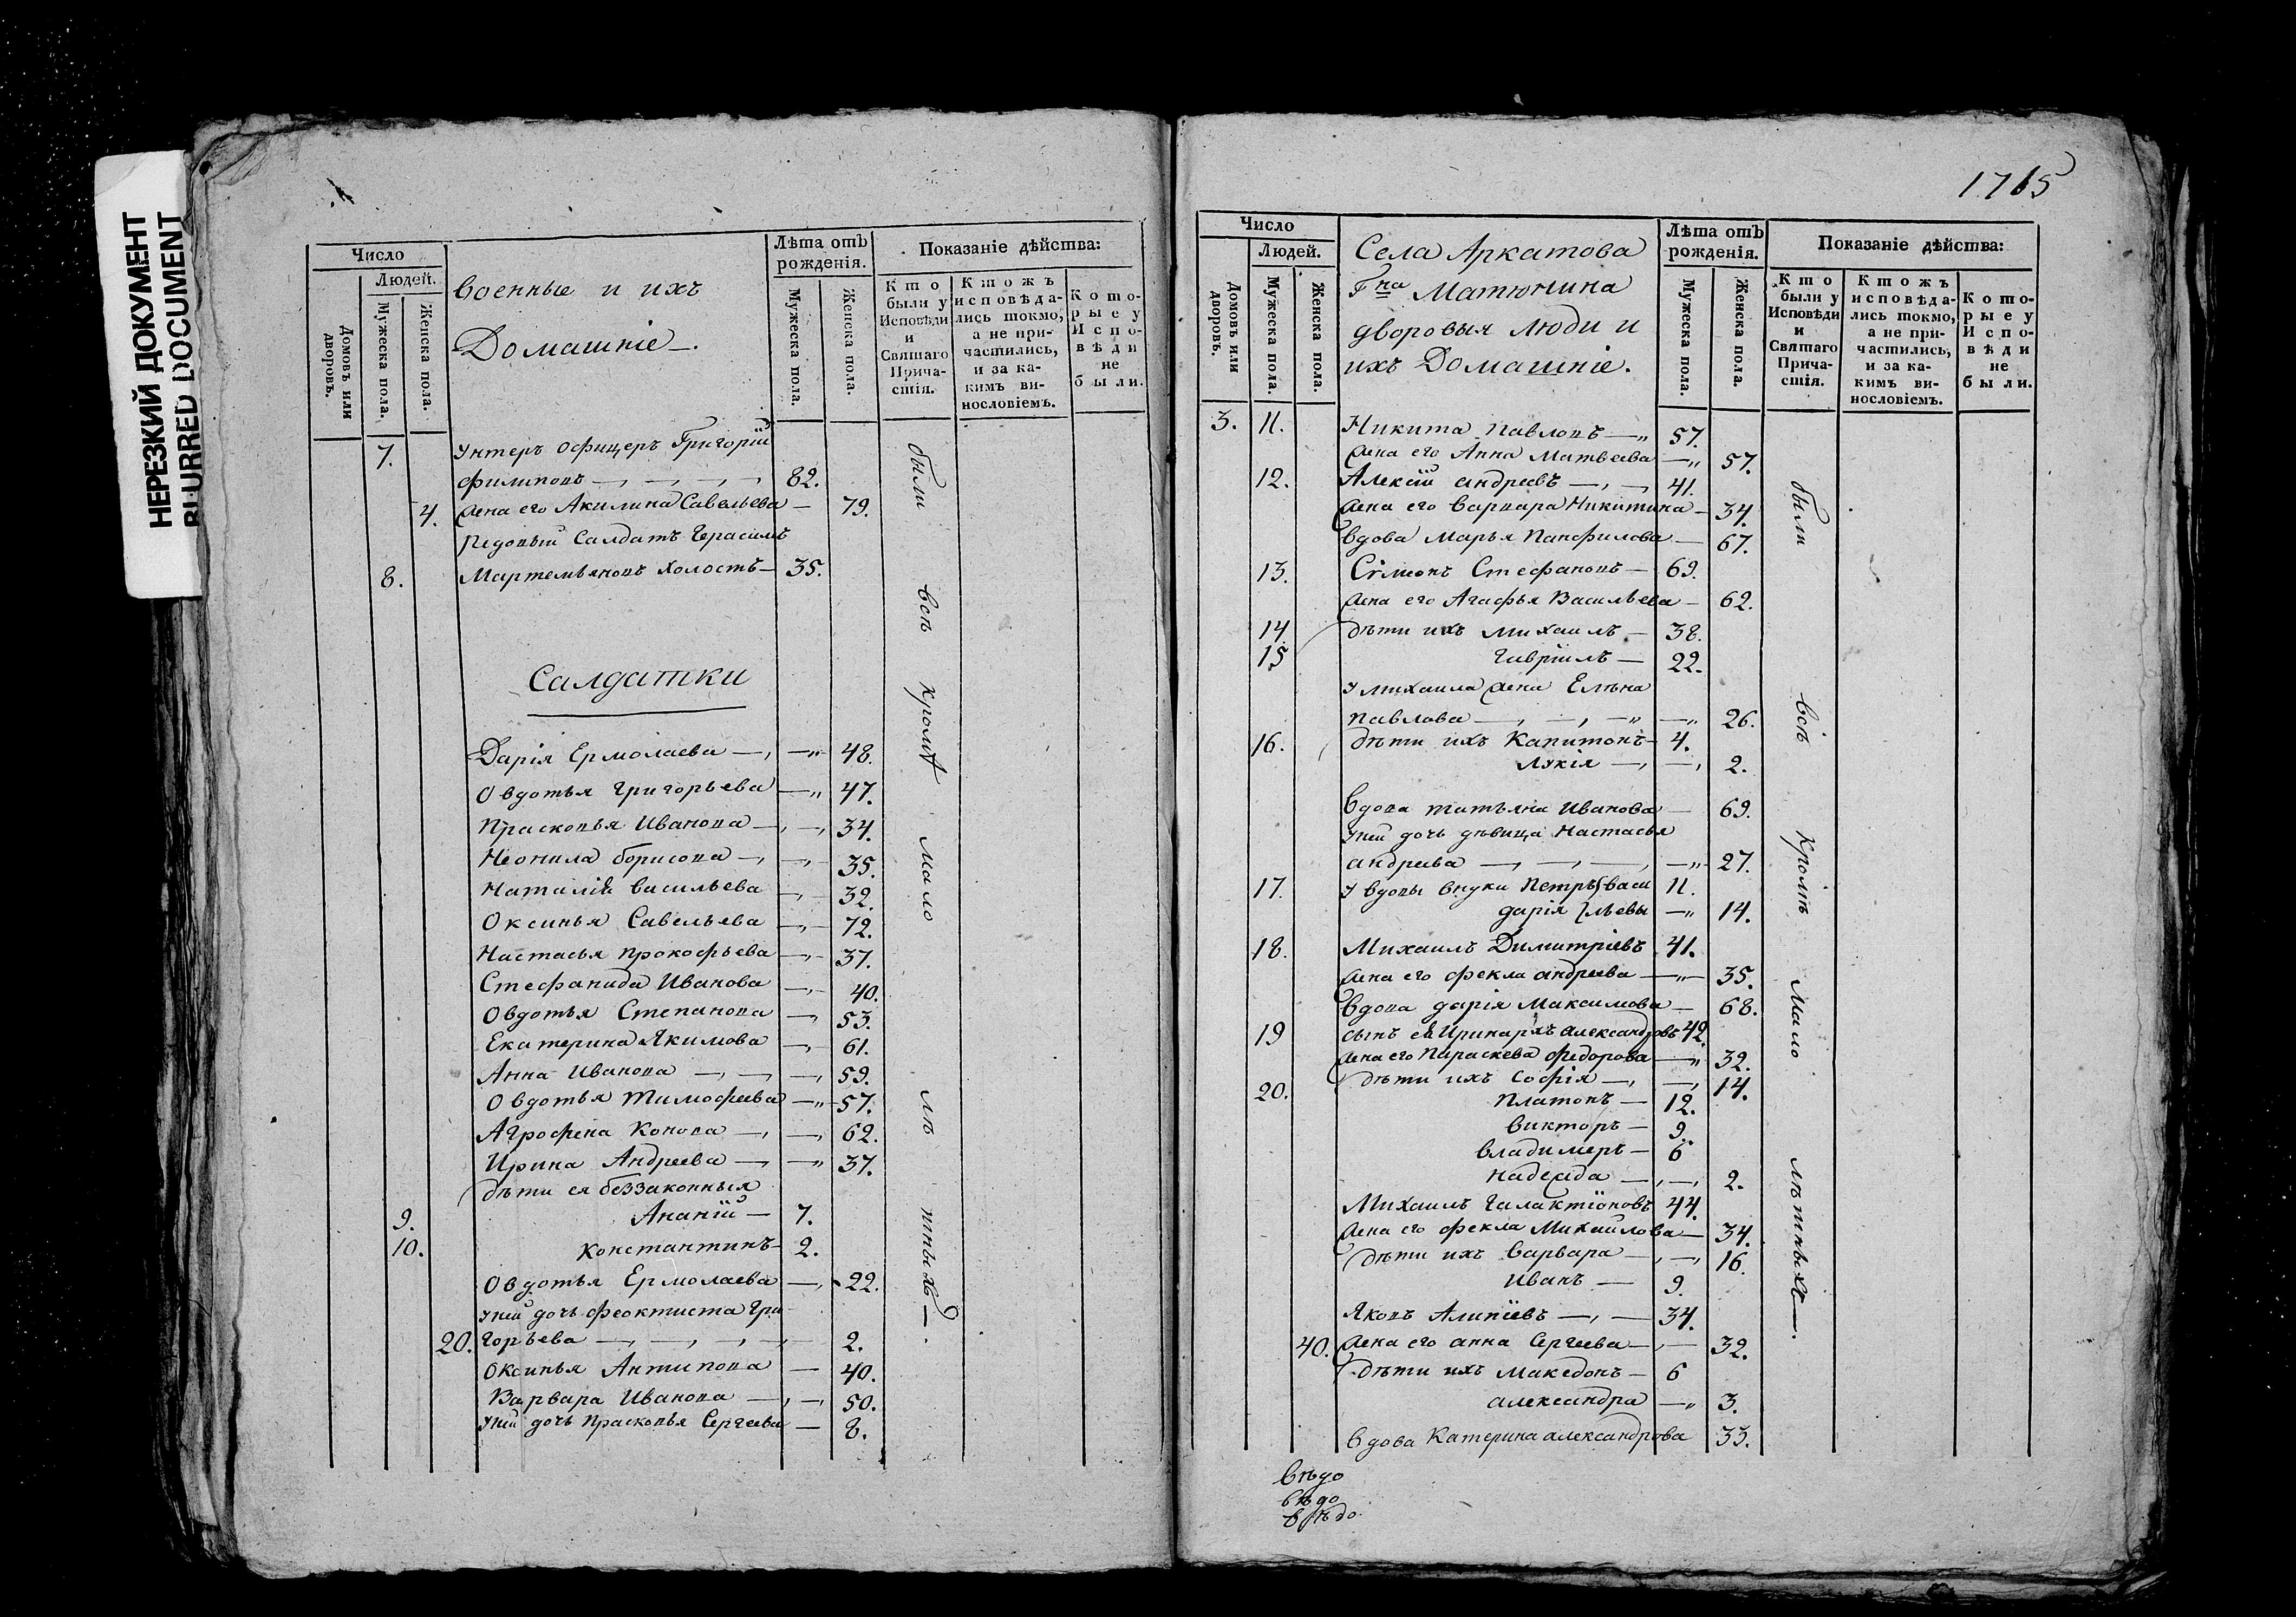 НЕРЕЗКИЙ ДОКУМЕНТ
BLURRED DOCUMENT
Число
Людей.
Домовъ или дворовъ.
Мужеска пола.
Женска пола.
Военные и ихъ
Домашніе.
Лѣта отъ рожденія.
Мужеска пола.
Женска пола.
Показаніе дѣйства:
Кто были у Исповѣди и Святаго Прича-стія.
Ктожъ исповѣда-лись токмо, а не при-частились, и за ка-кимъ ви-нословіемъ.
Кото-рые у Испо-вѣди не были.
7. Унтеръ Офицеръ Григорій
Филиповъ 82.
4. Жена его Акилина Савельева 79.
Редовый Салдатъ Герасимъ
8. Мартемьяновъ холостъ 35.
Салдатки
Дарія Ермолаева 48.
Овдотья Григорьева 47.
Прасковья Иванова 34.
Неонила Борисова 35.
Наталія Васильева 32.
Оксинья Савельева 72.
Настасья Прокофьева 37.
Стефанида Иванова 40.
Овдотья Степанова 53.
Екатерина Якимова 61.
Анна Иванова 59.
Овдотья Тимофеева 57.
Агрофена Конова 62.
Ирина Андреева 37.
дѣти ея беззаконныя
9. Ананій 7.
10. Константинъ 2.
Овдотья Ермолаева 22.
У ней дочь Феоктиста Гри
20. горьева 2.
Оксинья Антипова 40.
Варвара Иванова 50.
У ней дочь Прасковья Сергеева 8.
были всѣ кромѣ мало лѣтныхъ
1715
Число
Людей.
Домовъ или дворовъ.
Мужеска пола.
Женска пола.
Села Аркатова
Гна Матюнина
дворовыя люди и
ихъ Домашніе.
Лѣта отъ рожденія.
Мужеска пола.
Женска пола.
Показаніе дѣйства:
Кто были у Исповѣди и Святаго Прича-стія.
Ктожъ исповѣда-лись токмо, а не при-частились, и за ка-кимъ ви-нословіемъ.
Кото-рые у Испо-вѣди не были.
3. 11. Никита Павловъ 57.
Жена его Анна Матвеева 57.
12. Алексій Андреевъ 41.
Жена его Варвара Никитина 34.
Вдова Марья Панфилова 67.
13. Симеонъ Стефановъ 69.
Жена его Агафья Васильева 62.
14. дѣти ихъ Михаилъ 38.
15 Гавріилъ 22.
У Михаила жена Елѣна
Павлова 26.
16. дѣти ихъ Капитонъ 4.
Лукія 2.
Вдова Татьяна Иванова 69.
У ней дочь дѣвица Настасья
Андреева 27.
17. У вдовы внуки Петръ Васи 11.
дарія льевы 14.
18. Михаилъ Димитріевъ 41.
Жена его Фекла Андреева 35.
Вдова Дарія Максимова 68.
19 сынъ ея Иринархъ Александровъ 42.
Жена его Параскева Федорова 32.
дѣти ихъ Софія 14.
20. Платонъ 12.
Викторъ 9.
Владимеръ 6
Надежда 2.
Михаилъ Галактіоновъ 44.
Жена его Фекла Михайлова 34.
дѣти ихъ Варвара 16.
Иванъ 9.
Яковъ Алипіевъ 34.
40. Жена его Анна Сергеева 32.
дѣти ихъ Македонъ 6
Александра 3.
Вдова Катерина Александрова 33.
были всѣ кромѣ мало лѣтныхъ
вѣдо
вѣдо
вѣдо